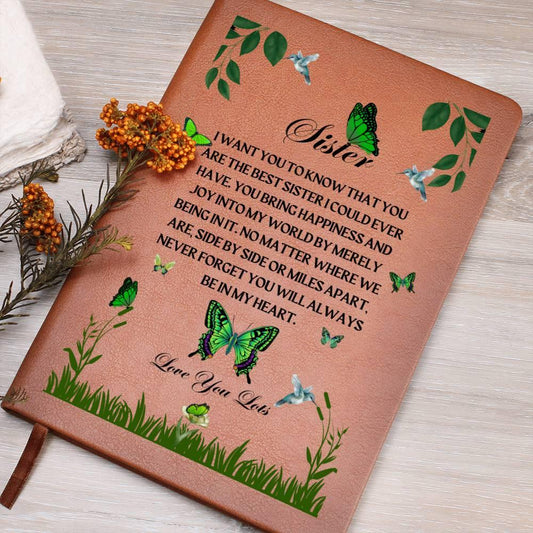 Sister
I WANT YOU TO KNOW THAT YOU
ARE THE BEST SISTER I COULD EVER
HAVE. YOU BRING HAPPINESS AND
JOY INTO MY WORLD BY MERELY
BEING IN IT. NO MATTER WHERE WE
ARE, SIDE BY SIDE OR MILES APART,
NEVER FORGET YOU WILL ALWAYS
BE IN MY HEART.
Love You Lots